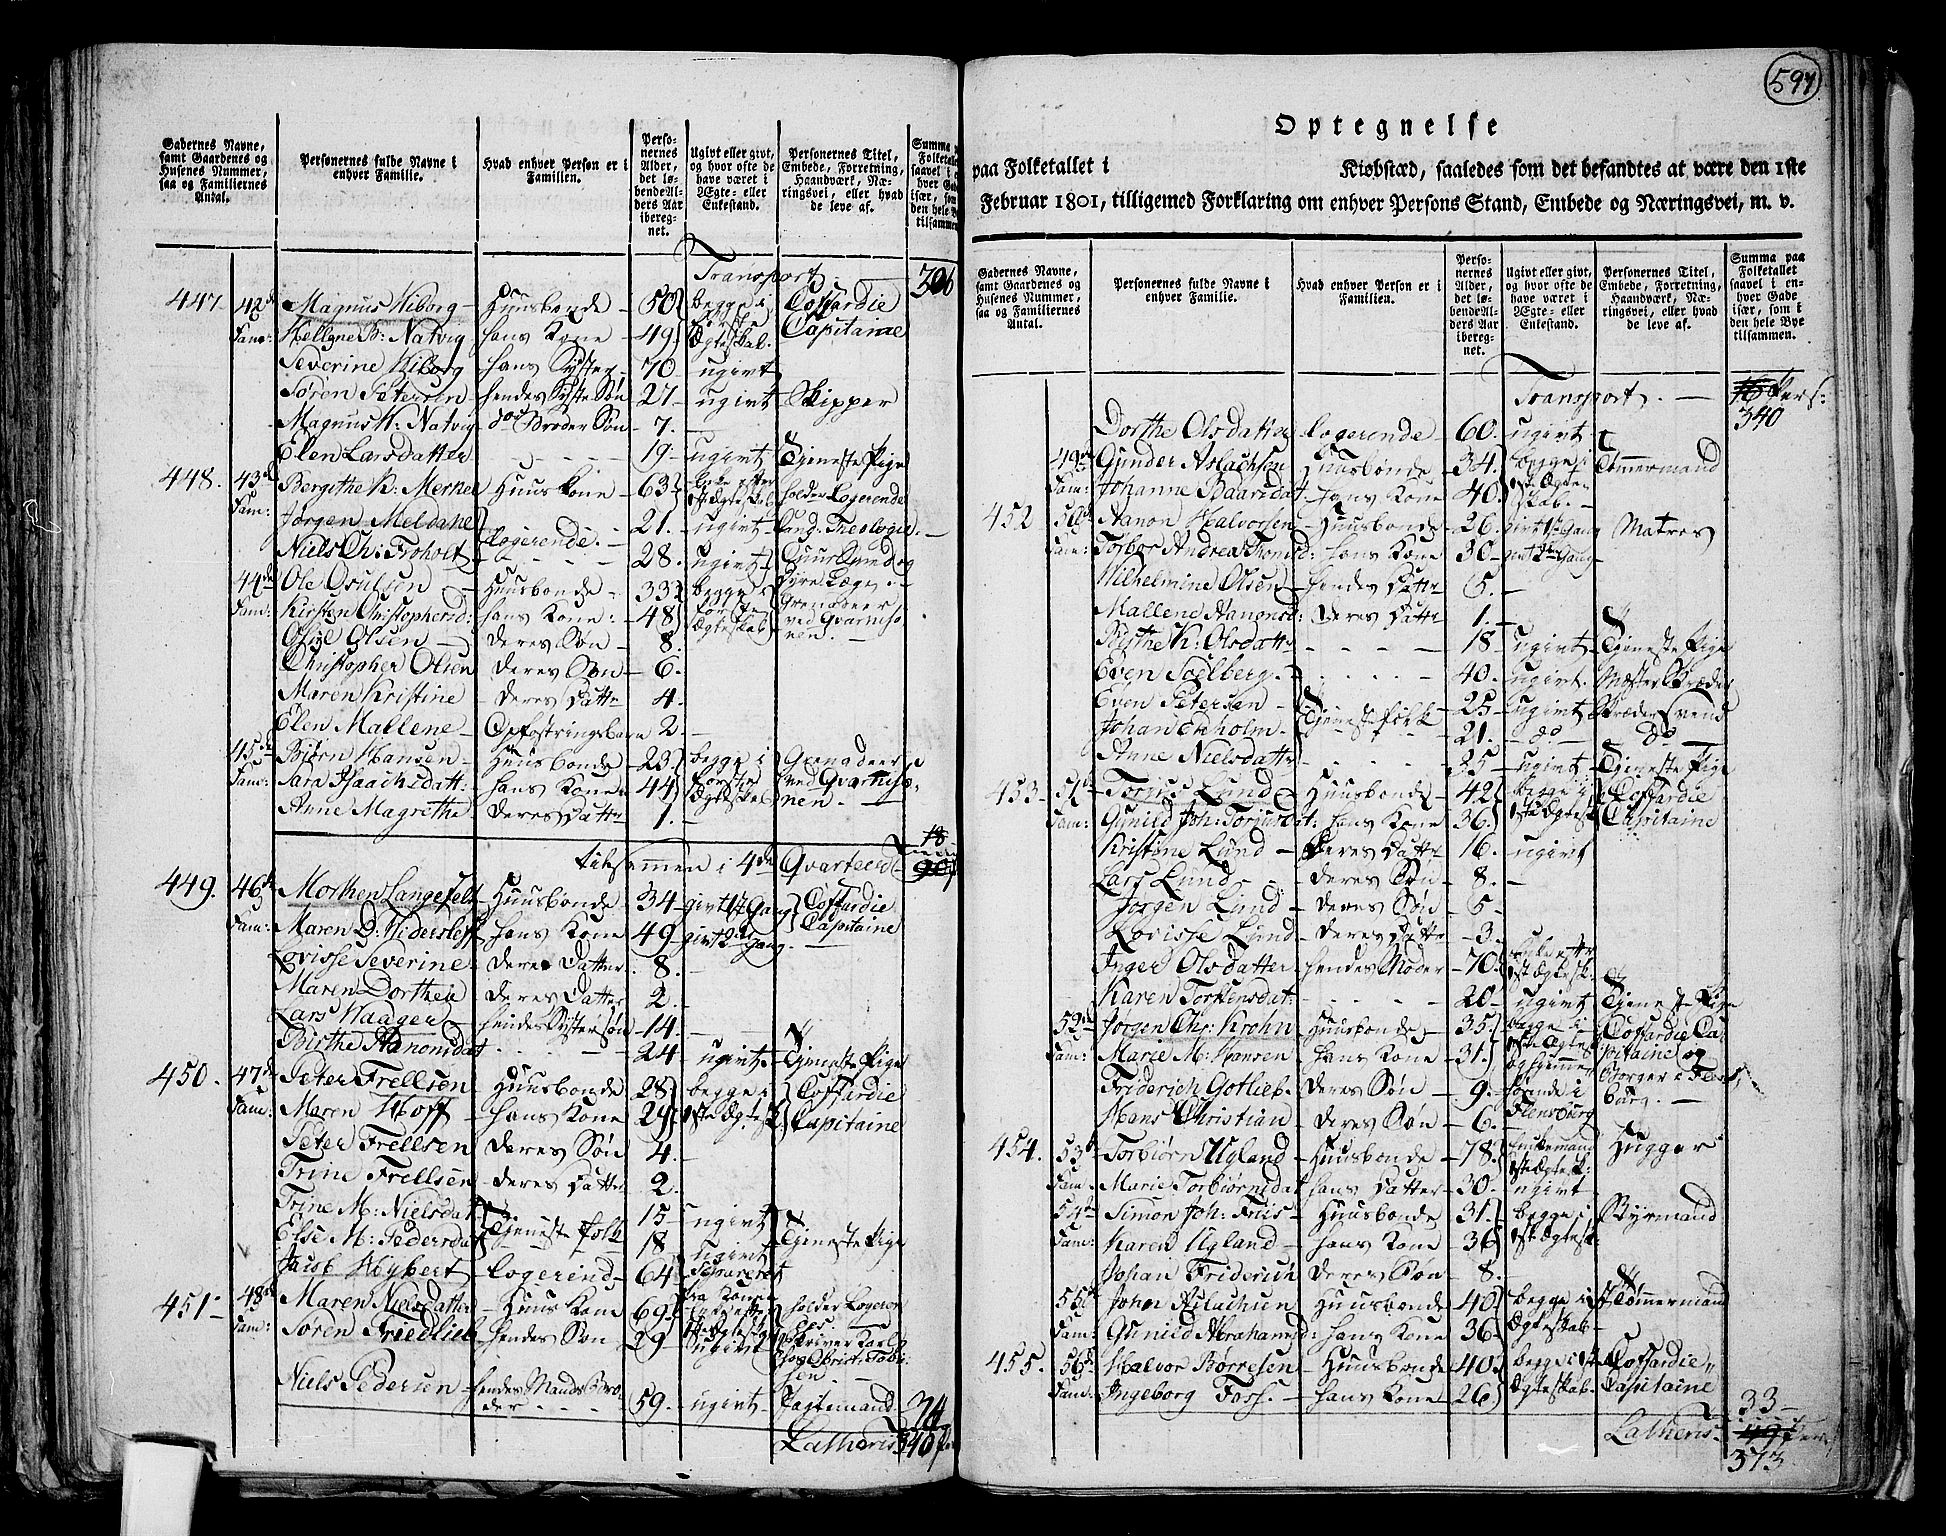 597
Gadernes Navne, samt Gaardenes og Husenes Nummer, saa og Familiernes Antal.
Personernes fulde Navne i enhver Familie.
Hvad enhver Person er i Familien.
Personernes Alder, det løbende Alders Aar iberegnet.
Ugivt eller givt, og hvor ofte de have været i Ægte- eller Enkestand.
Personernes Titel, Embede, Forretning, Haandværk, Næringsvei, eller hvad de leve af.
Transport — 306
447 42de Magnus Wiborg — Huusbonde — 50 begge i Coffardie
Fam: Hellgne B: Natvig hans Kone — 49 Ægteskab. Capitaine
Severine Wiborg — hans Syster — 70 ugivt
Søren Petersen — hendes Syste Søn 27 — ugivt — Skipper
Magnus W: Natvig — do Broder Søn — 7. —
Elen Larsdatter — 19 — ugivt — Tieneste Pige
448. 43de Bergithe K: Merkel Huus Kone — 63 holder Logerende
Fam: Jørgen Meldahl logerende — 21. — ugivt Stud: Theologie. —
Niels Ch: Froholt — 28. ugivt
44de Ole Osulsen — Huusbonde — 33 begge i
Fam: Kirsten Christophersd: hans Kone — 48 første Ægteskab Grenadeer ved Qvarnisonen. —
Olsen — deres Søn — 8.
Christopher Olsen deres Søn — 6.
Maren Kristine — deres Datter 4.
Elen Mallene — Opfostringsbarn 2 —
45de Biørn Hansen — Huusbonde — 23 begge i Grenadeer
Fam: Sara Isaachsdatt: hans Kone — 44 første Ægteskab ved Qvarnisonen. —
Anne Magrethe deres Datter 1. —
18
tilsammen i 4de Qvarteer
449. 46de Morthen Langefelt Huusbonde — 34 — givt 1ste Gang Coffardie
Fam: Maren D: hans Kone — 49 givt 2den Gang Capitaine —
Lovisse Severine — deres Datter. 8. —
Maren Dorthea deres Datter 2. —
Lars Waager — hendes Syster Søn — 14. —
Birthe Aanonsdat — 24 — ugivt. Tieneste Pige
450. 47de Peter Frellsen — Huusbonde — 28 begge i Coffardie
Fam: Maren Hoff — hans Kone — 29 1ste Ægtesk. Capitaine
Peter Frellsen deres Søn — 4. —
Trine Frellsen — deres Datter 2.
Trine M: Nielsdat Tieneste folk — 15 — ugivt
Else M: Pedersdat — 18 ugivt Tieneste Pige
Jacob Hybert — logerende — 64 Separeret fra Konen
451 — 48de Maren Nielsdatter — Huus Kone — 69 holder Logerende
Fam: Søren Friedlieb hendes Søn — 29 — ugivt Skriver Karl hos Christn Tobisen. —
Niels Pedersen — hendes Mands Broder — 59. — ugivt Jagtemand 34
Latheris 340
Optegnelse
paa Folketallet i Kiøbstæd, saaledes som det befandtes at være den 1ste
Februar 1801, tilligemed Forklaring om enhver Persons Stand, Embede og Næringsvei, m. v.
Gadernes Navne, samt Gaardenes og Husenes Nummer, saa og Familiernes Antal.
Personernes fulde Navne i enhver Familie.
Hvad enhver Person er i Familien.
Personernes Alder, det løbende Alders Aar iberegnet.
Ugivt eller givt, og hvor ofte de have været i Ægte- eller Enkestand.
Personernes Titel, Embede, Forretning, Haandværk, Næringsvei, eller hvad de leve af.
Summa paa Folketallet saavel i enhver Gade især, som i den hele Bye tilsammen.
Transport. — Pers:
340
Dorthe Olsdatter logerende — 60. ugivt
49de Gunder Aslachsen Huusbonde — 34. begge i Tømmermand
Fam: Johanne Baarsdat: hans Kone — 40. 1ste Ægteskab. —
452 50de Aanon Halvorsen — Huusbonde — 26. givt 1ste Gang Matros
Fam: Torbor Andrea Thomsd: hans Kone 30 — givt 2den Gang
Wilhelmine Olsen — hendes Datter 5. —
Mallene Aanonsd: deres Datter 1. —
Birthe K: Olsdatter — 18 — ugivt — Tieneste Pige
Even Soelberg. — 40. ugivt. Mester Skræder
Even Petersen — Tieneste folk — 25 — ugivt Skræder Svend
Johan Ekholm. — 21. — do. — do —
Anne Nielsdatter — 35 — ugivt — Tieneste Pige
453 — 51de Torgius Lund Huusbonde — 42 begge i Coffardie
Fam: Gunild Joh: Torgusdat: hans Kone — 36 1ste Ægtesk Capitaine
Kristine Lund — deres Datter — 16. — ugivt
Lars Lund — deres Søn — 8. —
Jørgen Lund — deres Søn — 5 —
Lovisse Lund — deres Datter — 3.
Inger Olsdatter — hendes Moder — 70. 1ste Ægtesk.
Karen Torkensdat: — 20 — ugivt Tieneste Pige
52de Jørgen Chr: Krohn Huusbonde — 35. begge i Coffardie Capitaine og
Fam: Marie M: Hansen — hans Kone — 31. 1ste Ægtesk Borger i Flensburg. —
Friderich Gotlieb. deres Søn — 9. hiemmehørende i Flensborg
Hans Christian — deres Søn — 6. —
454. 53de Torbiørn Ugland — Huusbonde — 78. Enkemand Hugger
Fam. Marie Torbiørnsdat hans Datter — 30. ugivt
54de Simon Joh: Friis — Huusbonde — 31. begge i Styrmand
Fam: Karen Ugland — hans Kone — 36 1ste Ægtesk.
Johan Friderich deres Søn — 8. —
55de John Aslachsen Huusbonde 40 begge i 1ste Tømmermand
Fam: Gunild Abrahamsd: hans Kone — 36 — Ægteskab —
455. 56de Halvor Børresen — Huusbonde 40 begge i 1ste Coffardie
Fam: Ingeborg Foss. — hans Kone — 26 Ægteskab — Capitaine
33 —
Latheris —
373